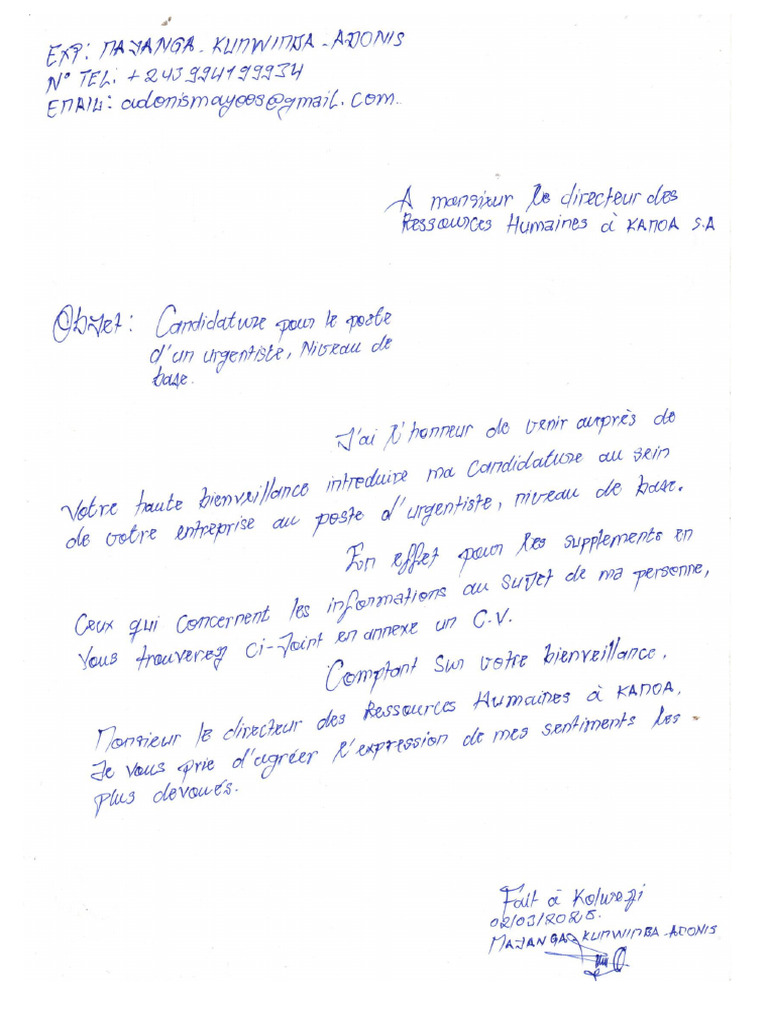 EXP: MAJANGA-KUMWIMBA-ADONIS
N° TEL: +243994199934
EMAIL: adonismayoos@gmail.com
A monsieur le directeur des
Ressources Humaines à KAMOA S.A
Objet: Candidature pour le poste
d'un urgentiste, Niveau de
base.
J'ai l'honneur de venir auprès de
Votre haute bienveillance introduire ma candidature au sein
de votre entreprise au poste d'urgentiste, niveau de base.
En effet pour les supplements en
Ceux qui concernent les informations au sujet de ma personne,
Vous trouverez ci-joint en annexe un C.V.
Comptant sur votre bienveillance,
Monsieur le directeur des Ressources Humaines à KAMOA,
Je vous prie d'agréer l'expression de mes sentiments les
plus devoués.
Fait à Kolwezi
02/03/2025.
MAJANGA KUMWIMBA-ADONIS